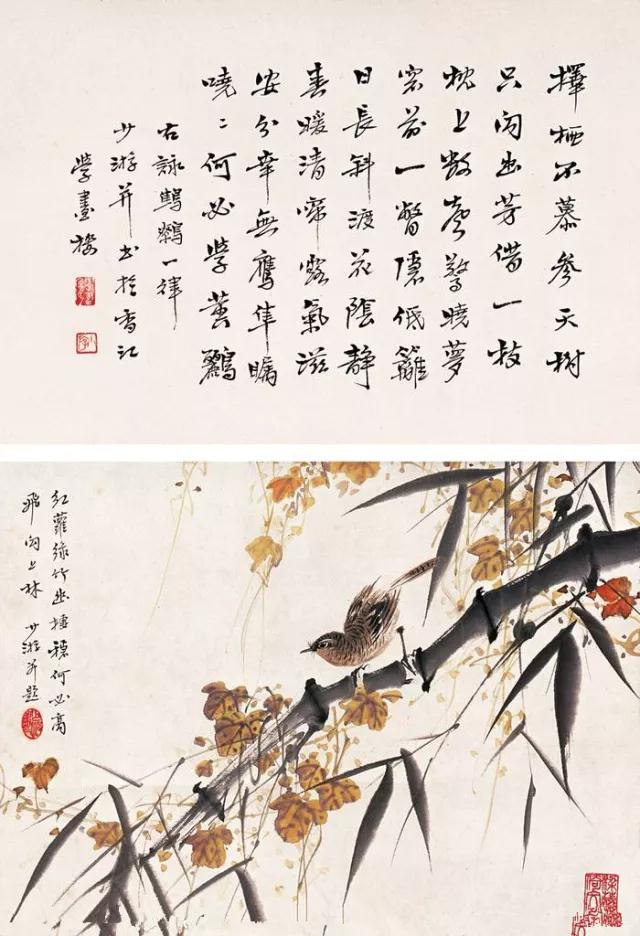 擇栖不慕參天樹
只向幽芳借一枝
枕上數聲驚曉夢
窗前一瞥隱低籬
日長斜渡花陰靜
春暖清啼露氣滋
安分幸無鷹隼矚
嘵〻何必學黃鸝
右詠鷦鷯一律
少游并書於香江
學畫樓
紅蘿綠竹幽棲穩何必高
飛向上林 少游并題